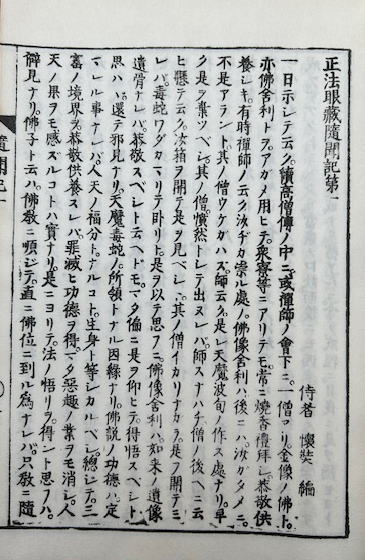 正法眼藏隨聞記第一
侍者 懷奘 編
一日示シテ云ク。續高僧傳ノ中ニ。或禪師ノ會下ニ。一僧アリ。金像ノ佛ト。
亦佛舍利トヲ。アガメ用ヒテ。衆寮等ニアリテモ。常ニ燒香禮拜シ。恭敬供
養シキ。有時禪師ノ云ク。汝ヂカ崇ル處ノ。佛像舍利ハ。後ニハ汝ガタメニ。
不是アラント。其ノ僧ウケガハズ。師云ク。是レ天魔波旬ノ作ス處ナリ。早
ク是ヲ棄ツベシ。其ノ僧憤然トシテ出ヌレバ。師スナハチ僧ノ後ヘニ云
ヒ懸テ云ク。汝箱ヲ開テ是ヲ見ベシト。其ノ僧イカリナカラ。是ヲ開テミ
レバ。毒蛇ワダカマリテ臥リト。是ヲ以テ思フニ。佛像舍利ハ。如來ノ遺像
遺骨ナレバ。恭敬スベシト云ヘドモ。マタ偏ニ是ヲ仰ヒテ。得悟スベシト
思ハバ。還テ邪見ナリ。天魔毒蛇ノ。所領トナル因緣ナリ。佛說ノ功德ハ。定
マレル事ナレバ。人天ノ福分トナルコト。生身ト等シカルベシ。總シテ。三
寳ノ境界ヲ。恭敬供養スレバ。罪滅ヒ功德ヲ得。マタ惡趣ノ業ヲモ消シ。人
天ノ果ヲモ感ズルコトハ實ナリ。是ニヨリテ。法ノ悟リヲ得ント思フハ。
僻見ナリ。佛子ト云ハ。佛敎ニ順シテ。直ニ佛位ニ到ル爲ナレバ。只敎ニ隨